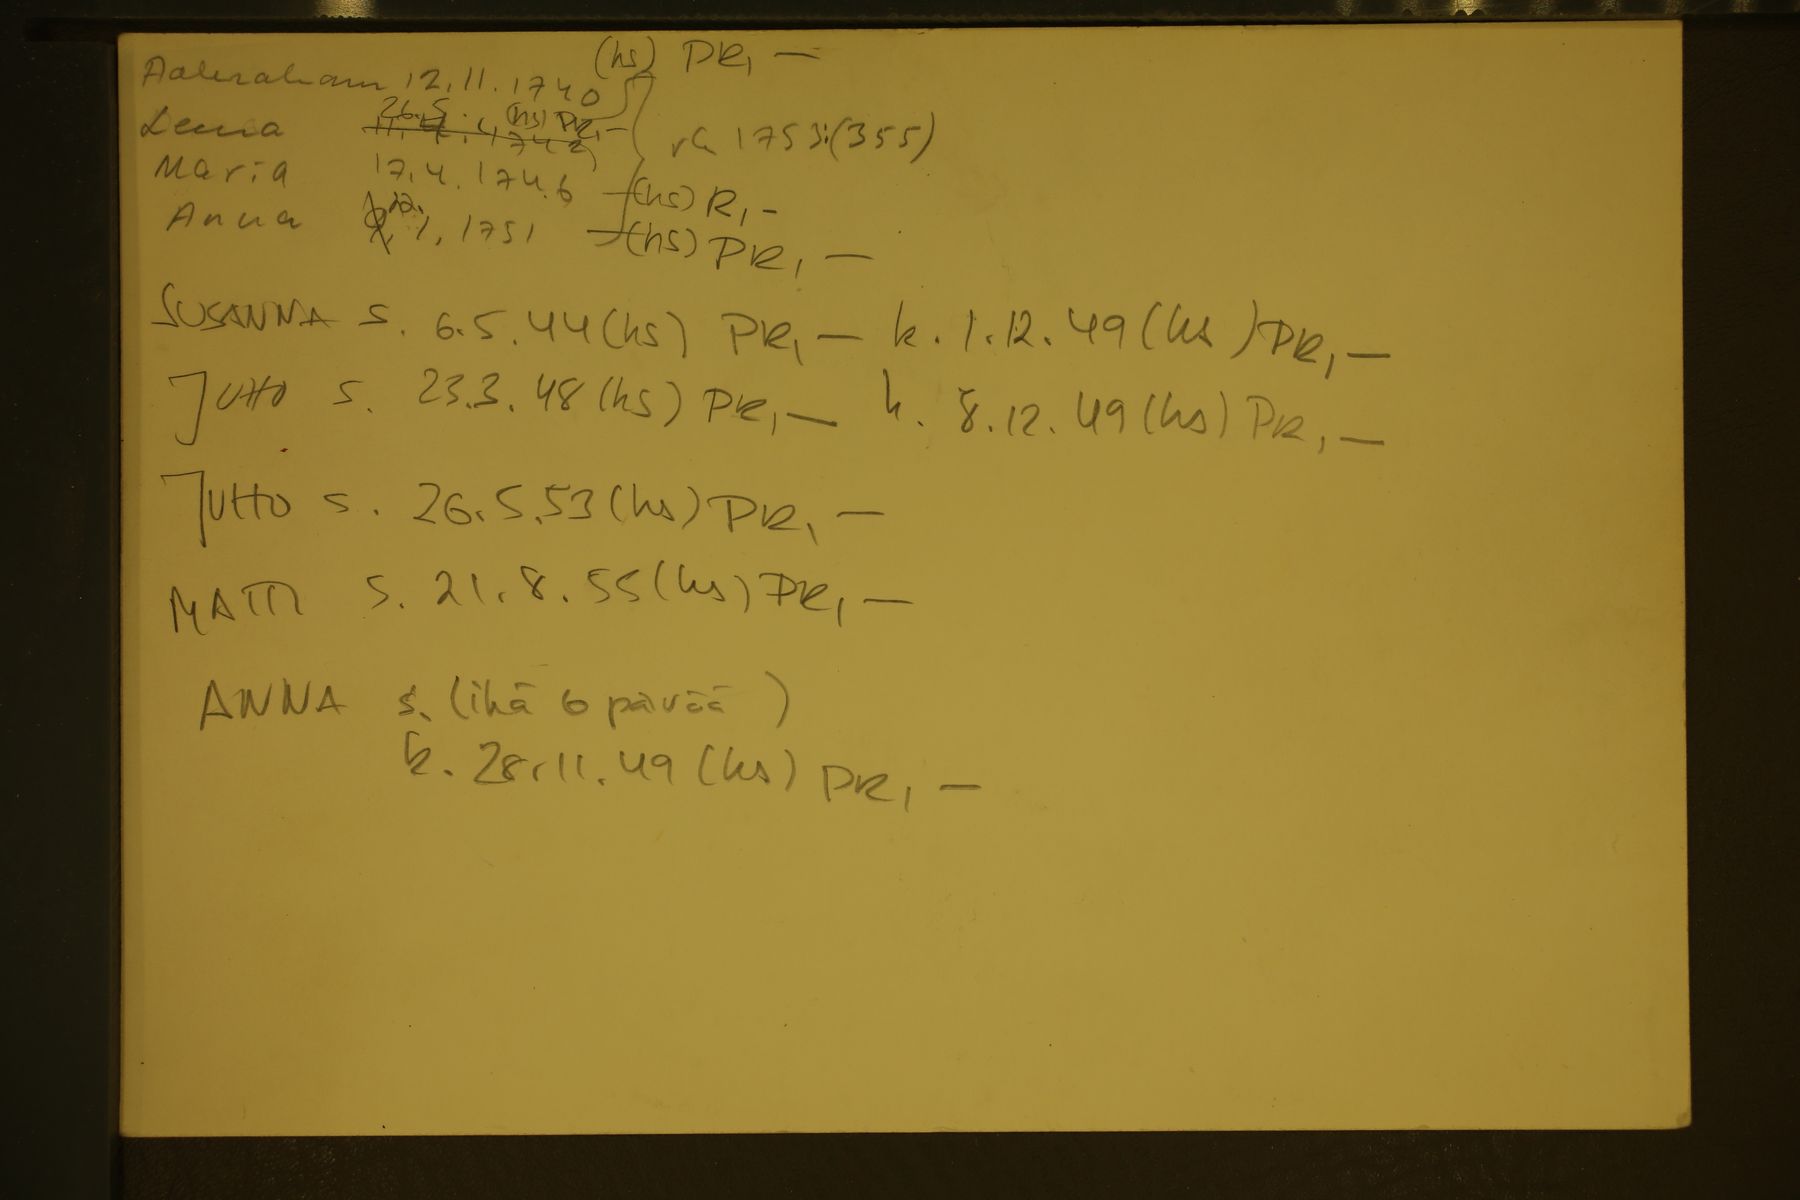 Aabraham 12.11.1740 (hs) PR, —
Leena 26.5. (hs) PR, —
rk 1753:(355)
Maria 17.4.1746 —(hs) R, -
Anna 12. 1. 1751 —(hs) PR, —
SUSANNA s. 6.5.44 (hs) PR, — k. 1.12.49 (hs) PR, —
JUHO s. 23.3.48 (hs) PR, — k. 8.12.49 (hs) PR, —
JUHO s. 26.5.53 (hs) PR, —
MATTI s. 21.8.55 (hs) PR, —
ANNA s. (ikä 6 päivää)
k. 28.11.49 (hs) PR, —